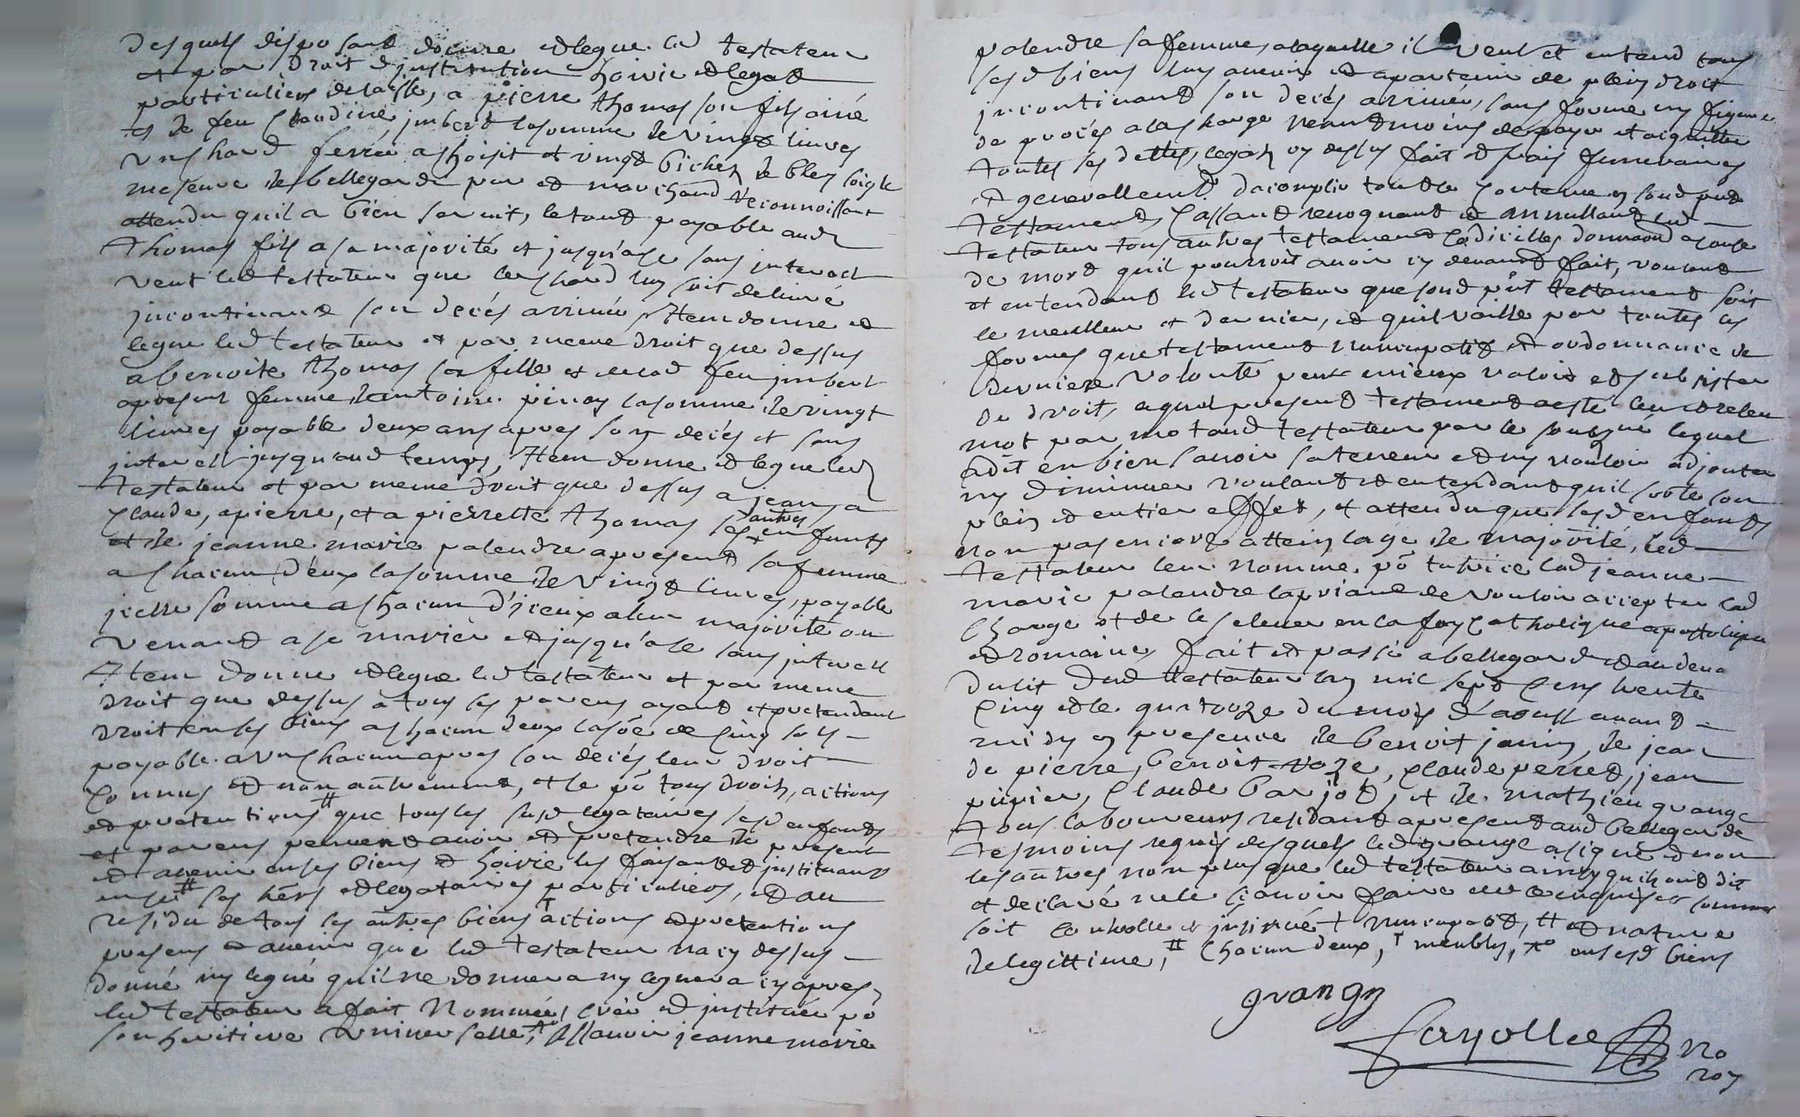 desquels disposant donne et legue led testateur
et par droit d'institution hoirie et legat
particuliers delaisse, a pierre thomas son fils ainé
et de feu claudine imbert la somme de vingt livres
un char ferré a choisir et vingt bichets de bled seigle
mesure de bellegarde pur et marchand reconnoissant
attendu quil a bien servit, le tout payable aud
thomas fils a sa majorité et jusqu'a ce sans interest
veut led testateur que le char luy soit delivré
incontinant son decés arrivée, Item donne et
legue led testateur et par meme droit que dessus
a benoite thomas sa fille et de lad feu imbert
apresent femme d'antoine pinay la somme de vingt
livres payable deux ans apres son decés et sans
interest jusqu'aud temps, Item donne et legue led
testateur et par meme droit que dessus a jean, a
claude, a pierre, et a pierrette thomas ses autres enfants
et de jeanne marie palendre apresent sa femme
a chacun d'eux la somme de vingt livres, payable
icelle somme a chacun d'iceux a leur majorité ou
venant a se marier et jusqu'a ce sans interest
Item donne et legue led testateur et par meme
droit que dessus a tous ses parens ayant et pretendant
droit en ses biens a chacun deux la soe de cinq sols
payable a un chacun apres son decés leur droit
connus et non autrement, et ce po tous droits, actions
et pretentions # que tous les susd legataires sesd enfants
et parens peuvent avoir et pretendre de present
et avenir en ses biens et hoirie les faisant et instituant
en ce # ses hers et legataires particuliers, et au
residu de tous ses autres biens † actions et pretentions
presens et avenir que led testateur n'a cy dessus
donné ny legué qu'il ne donnera ny leguera cy apres
led testateur a fait Nommée, créé et instituée po
son heritiere universelle, ‡ assavoir jeanne marie
palendre sa femme, a laquelle il veut et entend tous
sesd biens luy avenir et apartenir de plein droit
incontinant son decés arrivée, sans forme ny figure
de procés a la charge neantmoins de payer et acquitter
toutes ses dettes, legats cy dessus fait et frais funeraires
et generallement d'acomplir tout le contenue en sond pnt
testament, Cassant revoquant et annullant led
testateur tous autres testament codicilles donnaon a cause
de mort quil pourroit avoir cy devant fait, voulant
et entendant led testateur que sond pnt testament soit
le meilleur et dernier, et quil vaille par toutes les
formes que testament nuncupatif et ordonnance de
derniere volonté peut mieux valoir et subsister
de droit, aquel present testament a esté leu et releu
mot par mot aud testateur par le soubsigne lequel
a dit en bien scavoir sa teneur et ny vouloir adjouter
ny diminuer voulant et entendant quil sorte son
plein et entier effet, et attendu que sesd enfants
non pas encore attein l'age de majorité, led
testateur leur nomme po tutrice lad jeanne
marie palendre la priant de vouloir accepter lad
charge et de les elever en la foy catholique apostolique
et romaine, fait et passé a bellegarde et au devant
du lit dud testateur lan mil sept cens trente
cinq et le quatorze du mois d'aoust avant
midy en presence de benoit janin, de jean
de pierre, benoit roze, claude perret, jean
pupier, claude barjot, et de mathieu grange
tous laboureurs residant apresent aud bellegarde
tesmoins requis desquels led grange a signé et non
les autres non plus que led testateur ainsy quils ont dit
et declaré ne le scavoir faire de ce enquis et sommés
soit controllé et insinué † nuncupatif, # et nature
de legittime, # chacun deux, † meubles, ‡ en sesd biens
grangy
fayolle
No
roy